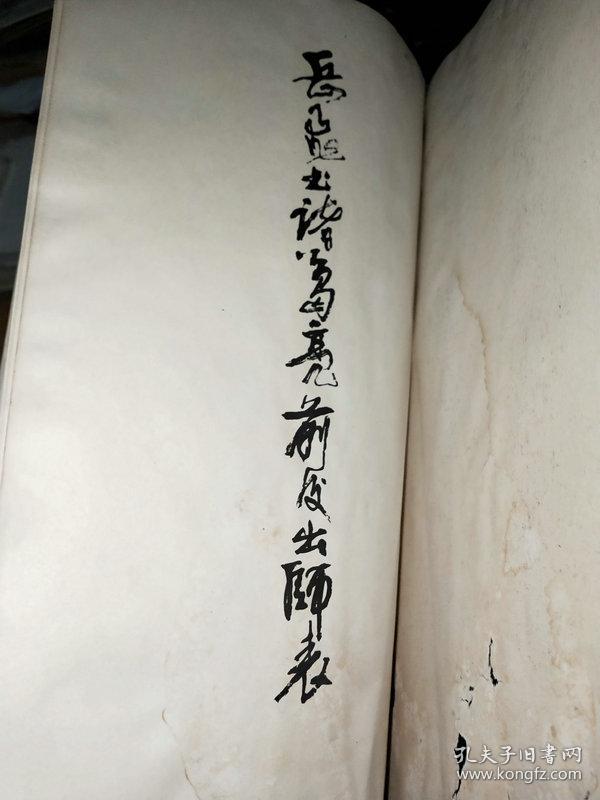 岳飞书诸葛亮前后出師表
孔夫子旧书网
www.kongfz.com